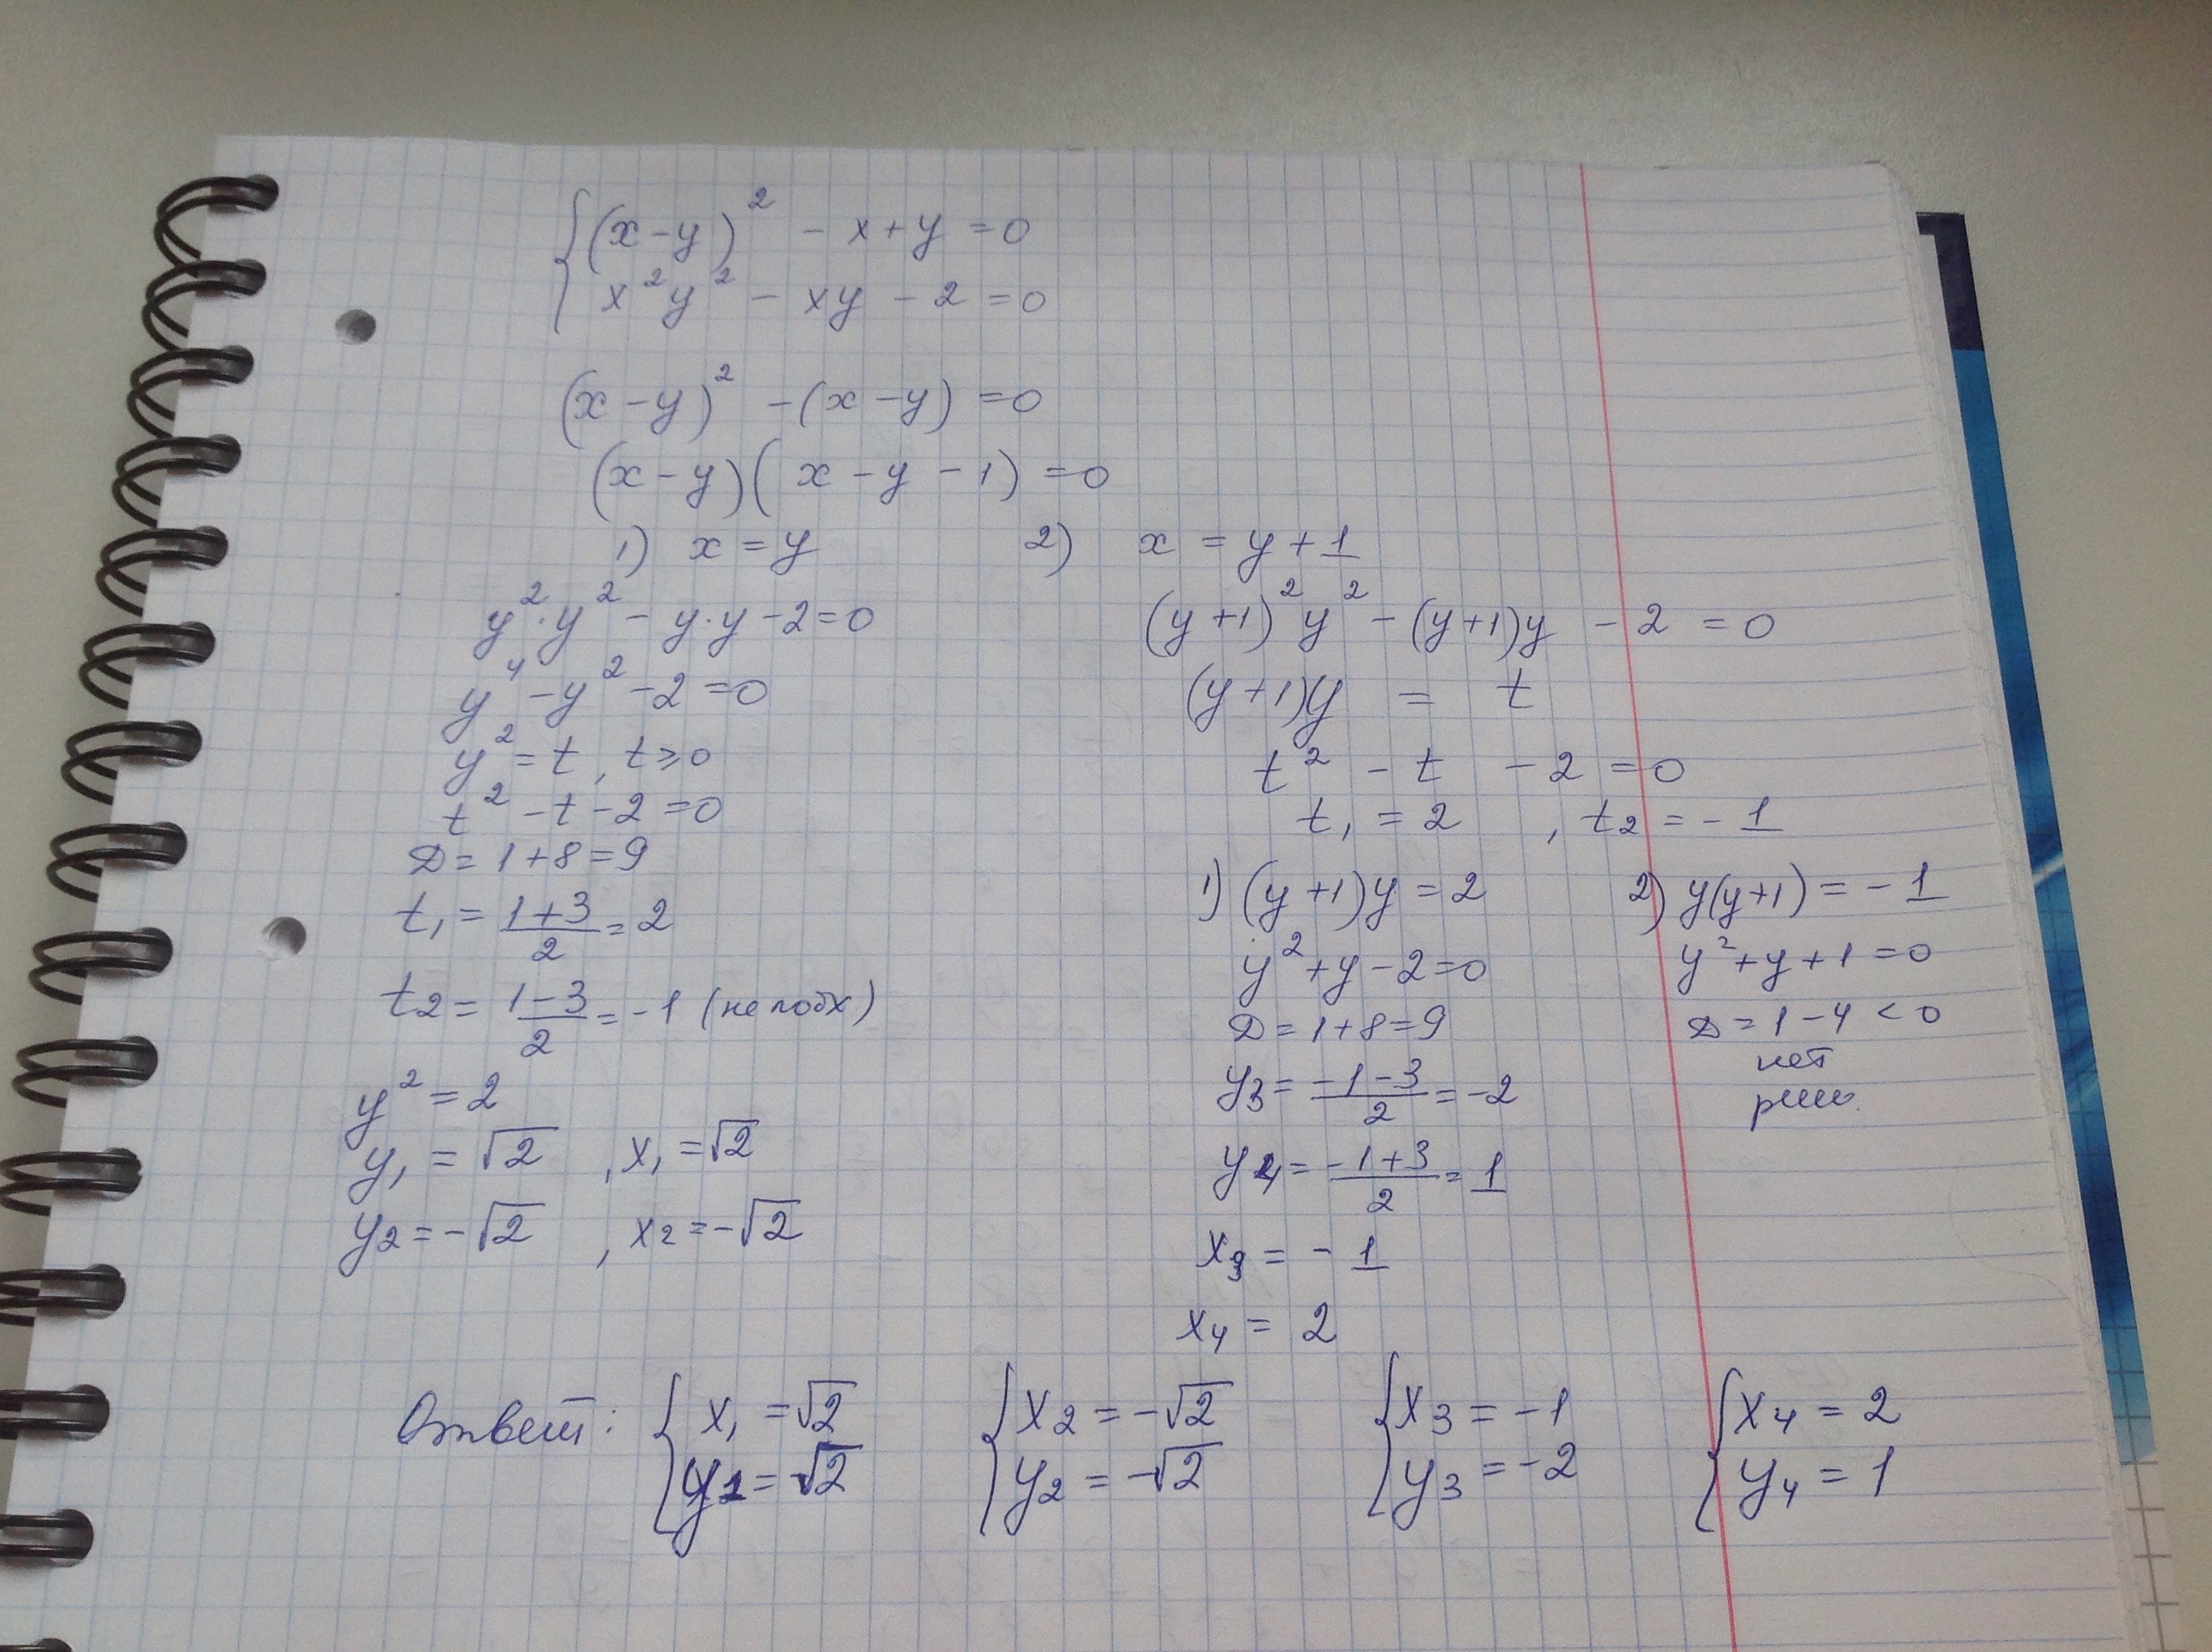 {(x-y)² - x+y =0
x²y² - xy - 2 =0
(x-y)² -(x-y) =0
(x-y)( x-y-1) =0
1) x = y
y²·y² - y·y -2=0
y⁴ -y² -2 =0
y² = t, t≥0
t² -t -2 =0
D= 1+8=9
t₁ = (1+3)/2 = 2
t₂ = (1-3)/2 = -1 (не подх)
y² = 2
y₁ = √2 , x₁ = √2
y₂ = -√2 , x₂ = -√2
2) x = y+1
(y+1)²y² -(y+1)y - 2 = 0
(y+1)y = t
t² - t - 2 =0
t₁ = 2 , t₂ = -1
1) (y+1)y = 2
y²+y-2=0
D= 1+8=9
y₃ = (-1-3)/2 = -2
y₄ = (-1+3)/2 = 1
x₃ = -1
x₄ = 2
2) y(y+1) = -1
y²+y+1 =0
D = 1-4 <0
нет
реш.
Ответ: {x₁ = √2 {x₂ = -√2 {x₃ = -1 {x₄ = 2
y₁ = √2 y₂ = -√2 y₃ = -2 y₄ = 1